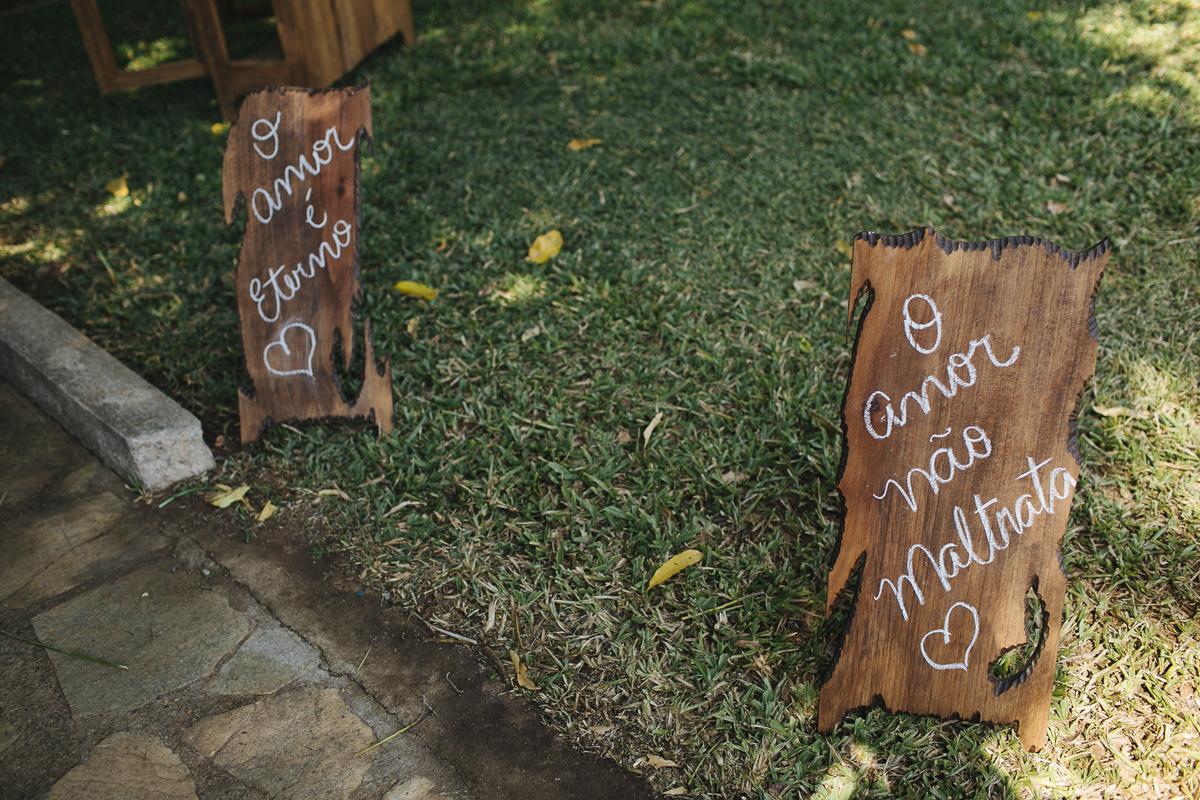 O
amor
é
Eterno
O
Amor
não
Maltrata